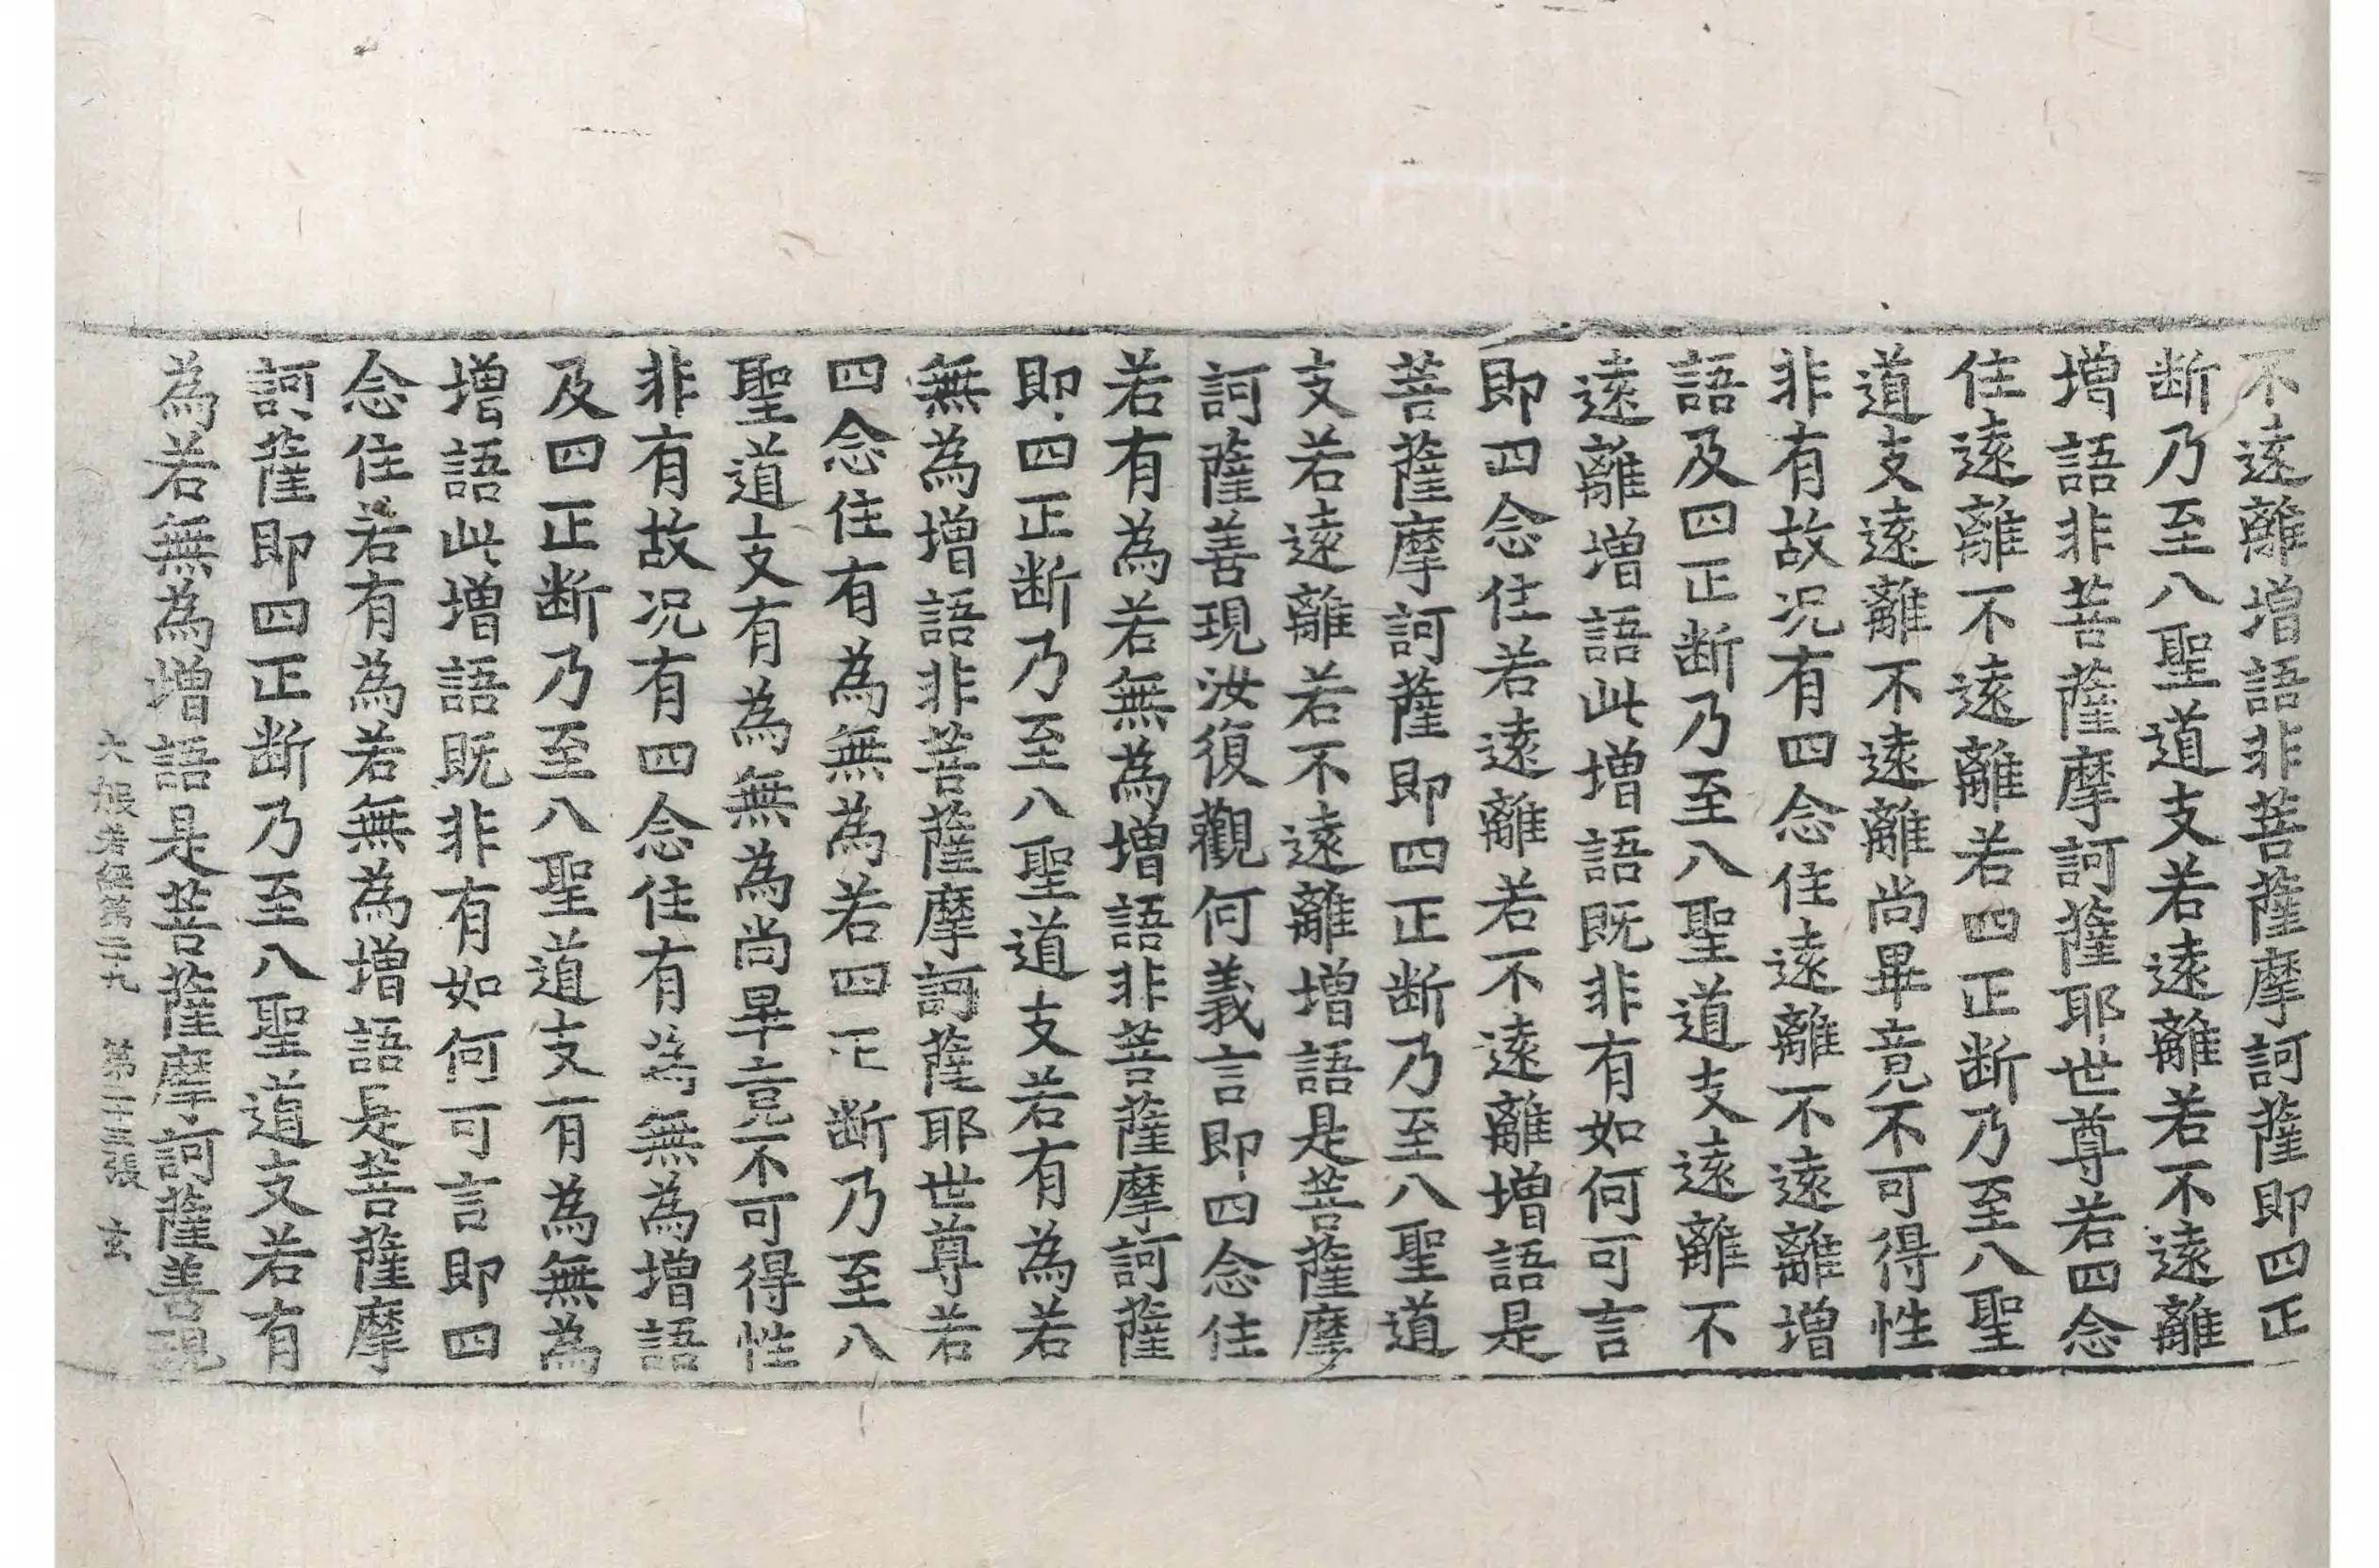 不遠離增語非菩薩摩訶薩即四正
断乃至八聖道支若遠離若不遠離
增語非菩薩摩訶薩耶世尊若四念
住遠離不遠離若四正断乃至八聖
道支遠離不遠離尚畢竟不可得性
非有故况有四念住遠離不遠離增
語及四正断乃至八聖道支遠離不
遠離增語此增語既非有如何可言
即四念住若遠離若不遠離增語是
菩薩摩訶薩即四正断乃至八聖道
支若遠離若不遠離增語是菩薩摩
訶薩善現汝復觀何義言即四念住
若有為若無為增語非菩薩摩訶薩
即四正断乃至八聖道支若有為若
無為增語非菩薩摩訶薩耶世尊若
四念住有為無為若四正断乃至八
聖道支有為無為尚畢竟不可得性
非有故况有四念住有為無為增語
及四正断乃至八聖道支有為無為
增語此增語既非有如何可言即四
念住若有為若無為增語是菩薩摩
訶薩即四正断乃至八聖道支若有
為若無為增語是菩薩摩訶薩善現
大般若經第二十九 第二十三張 玄